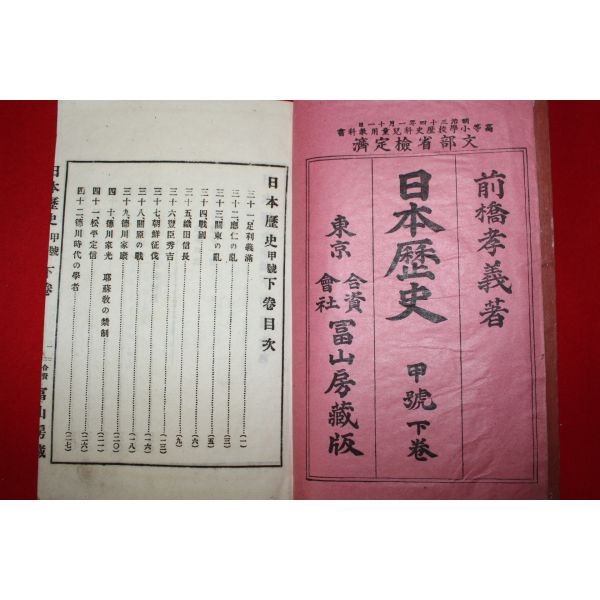 明治三十四年一月十一日
高等小學校歷史科兒童用敎科書
文部省檢定濟
前橋孝義著
日本歷史 甲號下卷
東京 合資會社 冨山房藏版
日本歷史 甲號 下卷目次
三十一 足利義滿 (一)
三十二 應仁の亂 (三)
三十三 關東の亂 (五)
三十四 戰國 (六)
三十五 織田信長 (九)
三十六 豐臣秀吉 (一三)
三十七 朝鮮征伐 (一六)
三十八 關原の戰 (一八)
三十九 德川家康
四十 德川家光 耶蘇敎の禁制 (二〇)
四十一 松平定信 (二二)
四十二 德川時代の學者 (二七)
日本歷史 甲號 下卷
一
合資 冨山房藏